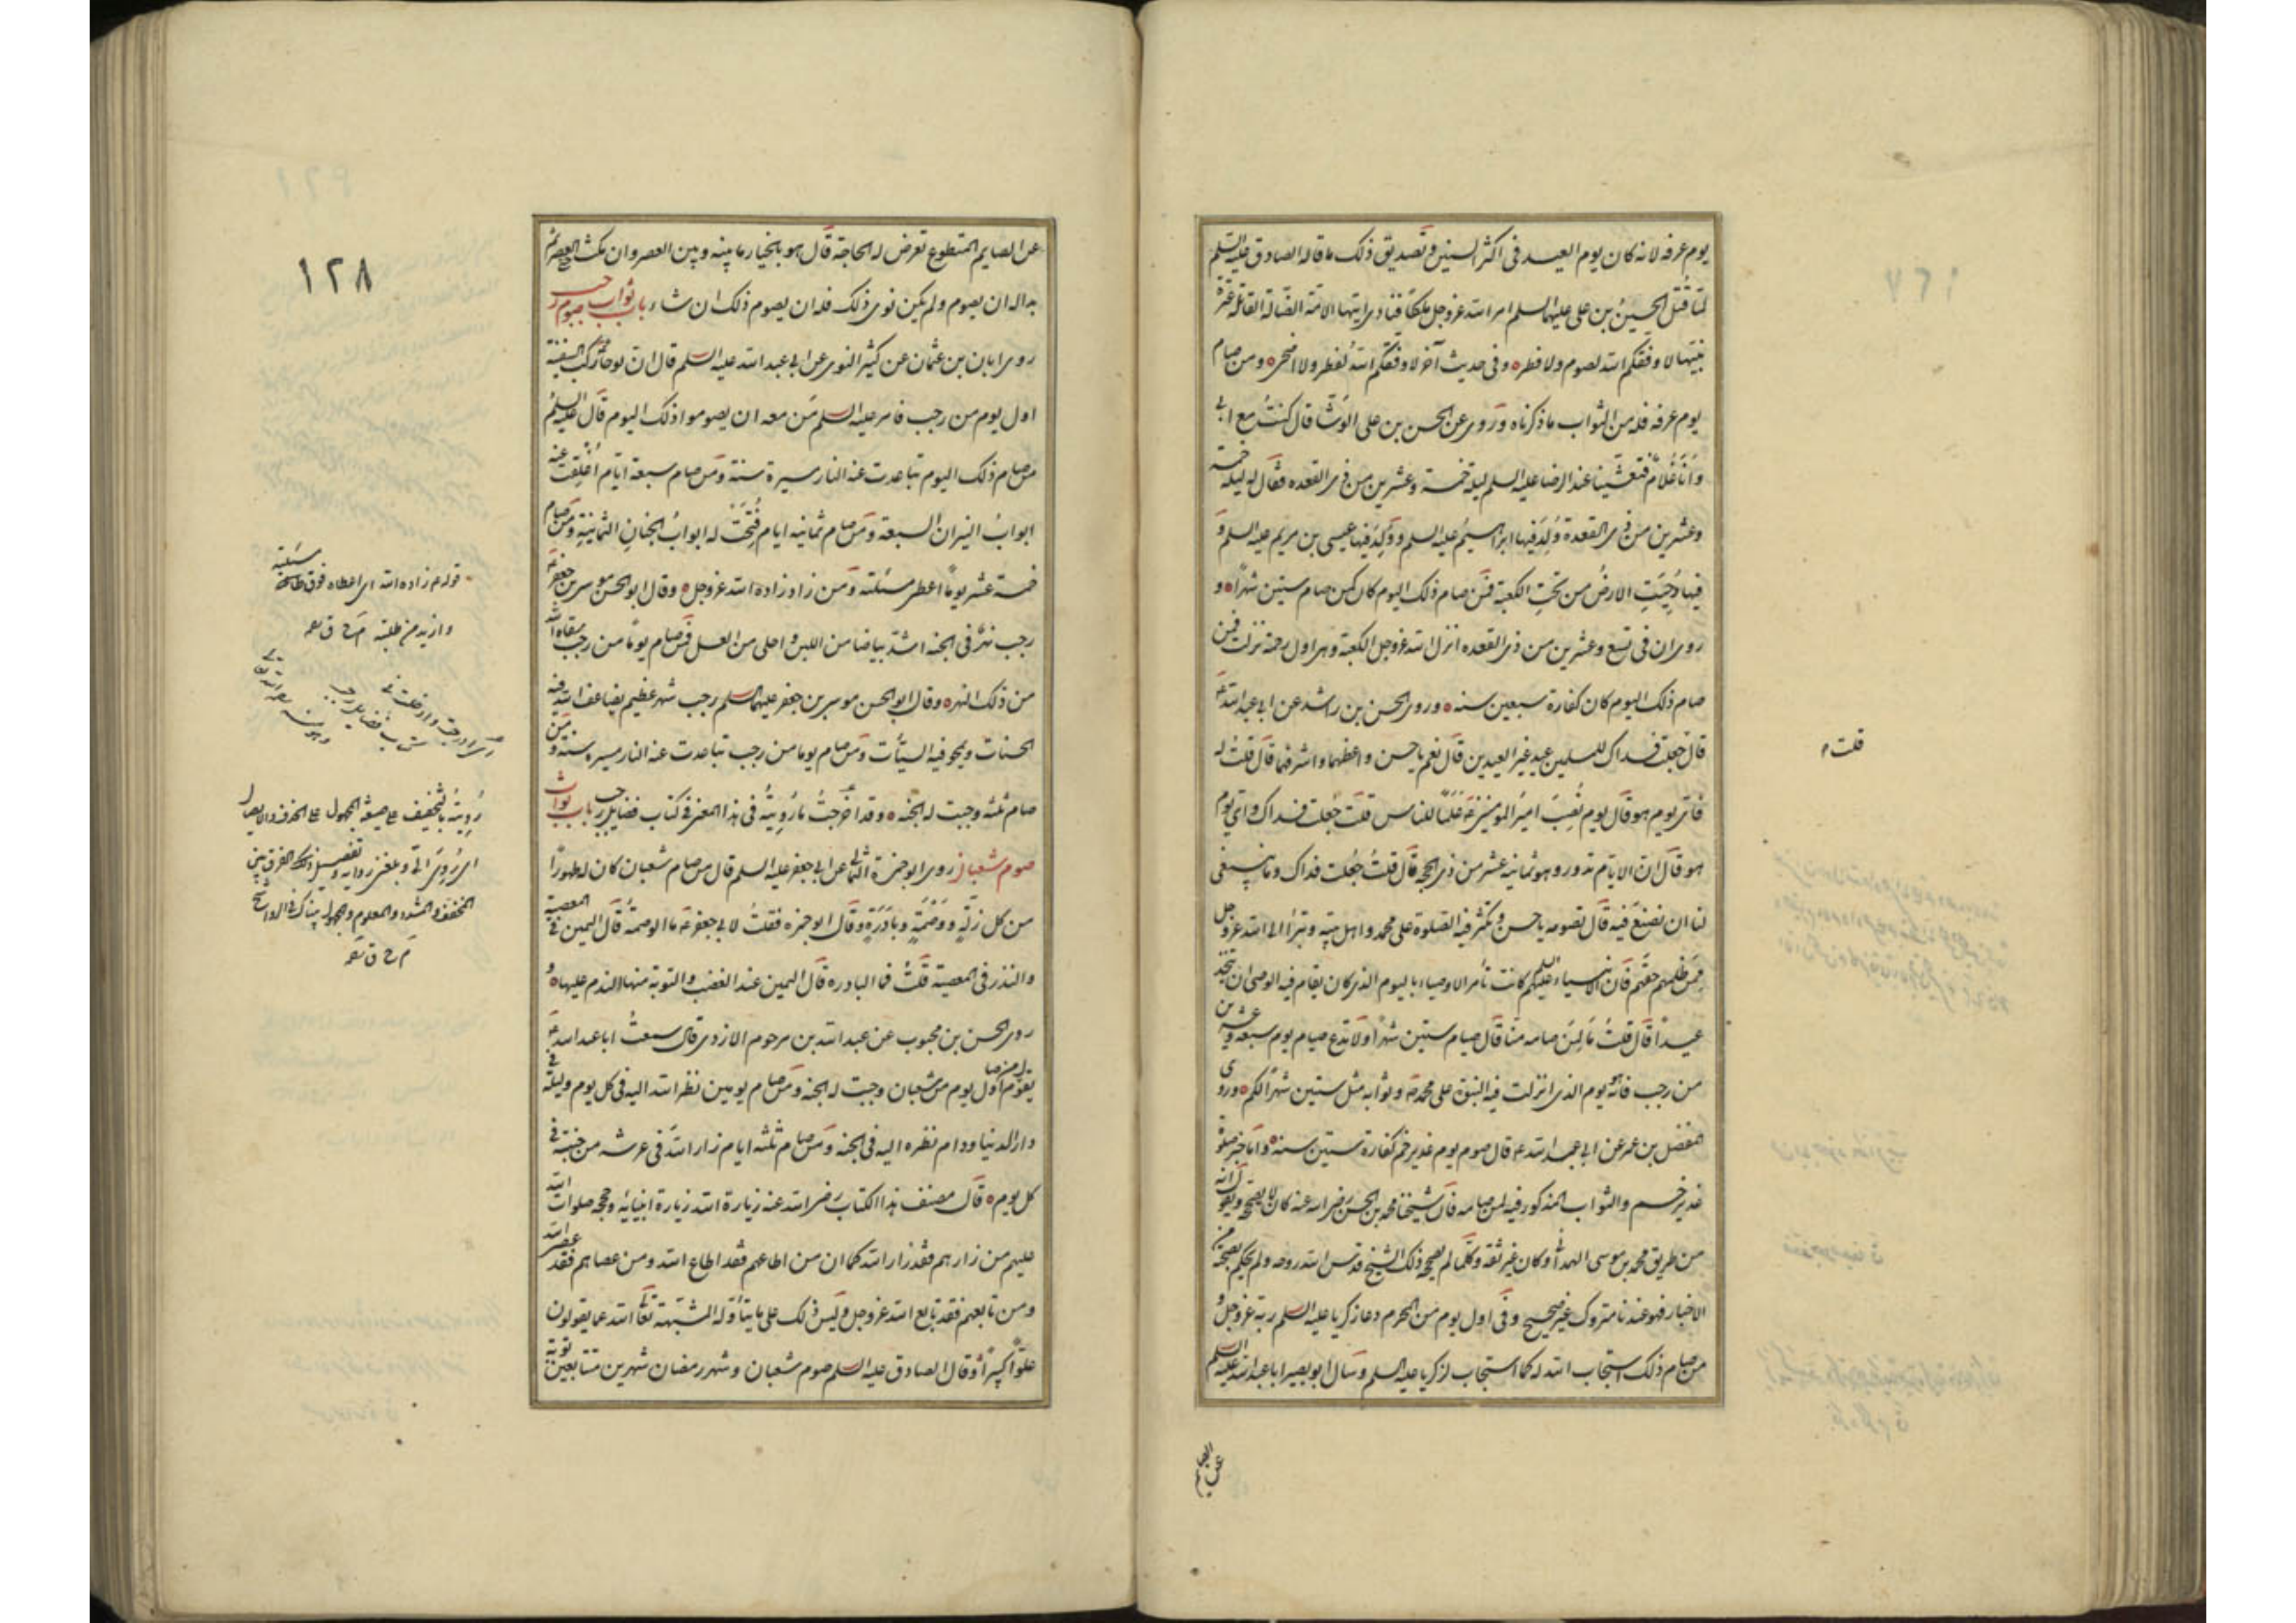 يوم عرفه لانه كان يوم العيد فى اكثر السنين و تصديق ذلك ما قاله الصادق عليه السلم
لمّا قُتل الحسينُ بن على عليهما السلم امر الله عزوجل ملكاً فنادى ايتها الامة الضّالة القاتلة عترة
نبيّها لا وفقكم الله لصوم ولا فطره وفى حديث آخر لا وفّقكم اللهُ لفطر ولا اضحى ومن صام
يوم عرفه فله من الثواب ما ذكرناه وروى عن الحسن بن على الوشّا قال كنتُ مع ابى
وَانَا غُلامٌ فتعشّينا عند الرضا عليه السلم ليلة خمسة وعشرين من ذى القعده فقال له ليلة خمسة
وعشرين من ذى القعدة وُلِدَ فيها ابراهيمُ عليه السلم ووُلِدَ فيها عيسى بن مريم عليه السلم وَ
فيها دُحِيَتِ الارضُ من تحتِ الكعبة فمن صام ذلك اليوم كان كمن صام ستين شهراً و
روى ان فى تسع وعشرين من ذى القعده انزل الله عزوجل الكعبة وهى اول رحمة نزلت فمن
صام ذلك اليوم كان كفارة سبعين سنه وروى الحسن بن راشد عن ابى عبد الله ع
قال جعلت فداك للمسلمين عيد غير العيدين قال نعم يا حسن و اعظمهما واشرفهما قال قلتُ له
فاىّ يوم هو قال يوم نُصِبَ اميرُ المومنين ع عَلَماً للناس قلت جُعلت فداك واىّ يوم
هو قال ان الايام تدور وهو ثمانية عشر من ذى الحجه قال قلتُ جُعلت فداك وما ينبغى
لنا ان نصنعَ فيه قال تصومه يا حسن وتكثر فيه الصلوة على محمد واهل بيته وتبرأ الى الله عزوجل
ممّن ظلمهم حقّهم فان الانبياء عليهم السلم كانت تأمر الاوصياء باليوم الذى كان يقام فيه الوصى ان يتّخذ
عيداً قال قلتُ مَا لِمَن صامه منّا قال صيام ستين شهراً ولا تدع صيام يوم سبعة وعشرين
من رجب فانّه هو يوم الذى انزلت فيه النبوّة على محمد ص وثوابه مثل ستين شهراً لكم وروى
المفضل بن عمر عن ابى عبد الله ع قال صوم يوم غدير خم كفارة ستين سنه وامّا خبر صلوة
غدير خم والثواب المذكور فيه لمن صامه فان شيخنا محمد بن الحسن رضى الله عنه كان لا يصححه ويقول انه
من طريق محمد بن موسى الهمدانى وكان غير ثقه وكلّما لم يصححه ذلك الشيخ قدس الله روحه ولم يحكم بصحته من
الاخبار فهو عندنا متروك غير صحيح وفى اول يوم من المحرم دعا زكريا عليه السلم ربه عزوجل و
من صام ذلك استجاب الله له كما استجاب لزكريا عليه السلم وسال ابو بصير ابا عبد الله عليه السلم
عن الصايم
قلت
١٢٨
عن الصايم المتطوع تعرض له الحاجة قال هو بالخيار ما بينه وبين العصر وان مكث العصر ثم
بدا له ان يصوم ولم يكن نوى ذلك فله ان يصوم ذلك ان شاء باب ثواب صوم رجب
روى ابان بن عثمان عن كثير النوى عن ابى عبد الله عليه السلم قال ان نوحا ركب السفينة
اول يوم من رجب فامر عليه السلم مَن معه ان يصوموا ذلك اليوم قال عليه السلم
من صام ذلك اليوم تباعدت عنه النار مسيرة سنة ومن صام سبعة ايام اُغلِقت عنه
ابوابُ النيران السبعه ومن صام ثمانية ايام فُتِحَتْ له ابوابُ الجنانِ الثمانيةِ ومن صام
خمسة عشر يوماً اعطى مسئلته ومن زاد زاده الله عزوجل وقال ابو الحسن موسى بن جعفر ع
رجب نهرٌ فى الجنه اشد بياضا من اللبن و احلى من العسل فمن صام يوماً من رجب سقاه الله
من ذلك النهر وقال ابو الحسن موسى بن جعفر عليهما السلم رجب شهر عظيم يضاعف الله فيه
الحسنات ويمحو فيه السيّأت ومن صام يوما من رجب تباعدت عنه النار مسيره سنة ومن
صام ثلثه وجبت له الجنه وقد اخرجتُ ما رُويتُه فى هذا المعنى فى كتاب فضايل رجب باب ثواب
صوم شعبان روى ابو حمزة الثمالى عن ابى جعفر عليه السلم قال من صام شعبان كان له طهوراً
من كل زلّةٍ ووَصْمَةٍ وبادَرَةٍ وقال ابو حمزه فقلتُ لابى جعفر ع ما الوصمةُ قال اليمين فى المعصية
والنذر فى المعصية قلتُ فما البادره قال اليمين عند الغضب والتوبة منها الندم عليها و
روى الحسن بن محبوب عن عبد الله بن مرحوم الازدى قال سمعتُ ابا عبد الله ع
يقول من صام اول يوم من شعبان وجبت له الجنه ومن صام يومين نظر الله اليه فى كل يوم وليلة فى
دار الدنيا ودام نظره اليه فى الجنه ومن صام ثلثه ايام زار اللهَ فى عرشه من جنته فى
كل يوم قال مصنف هذا الكتاب رضى الله عنه زيارة الله زيارة انبيائه وحججه صلوات الله
عليهم من زارهم فقد زار الله كما ان من اطاعهم فقد اطاع الله ومن عصاهم فقد عصى الله
ومن تابعهم فقد تابع الله عزوجل وليس ذلك على ما يتأوّله المشبّهة تعالى الله عما يقولون
علوّاً كبيراً وقال الصادق عليه السلم صوم شعبان وشهر رمضان شهرين متتابعين توبة
قوله ع زاده الله اى اعطاه فوق مسئلته
وازيد من طلبته م ح ق
رُويتُه بالتخفيف على صيغة المجهول على الحذف والايصال
اى رُوِىَ الىّ
المخفف والمشدد والمعلوم والمجهول
م ح ق